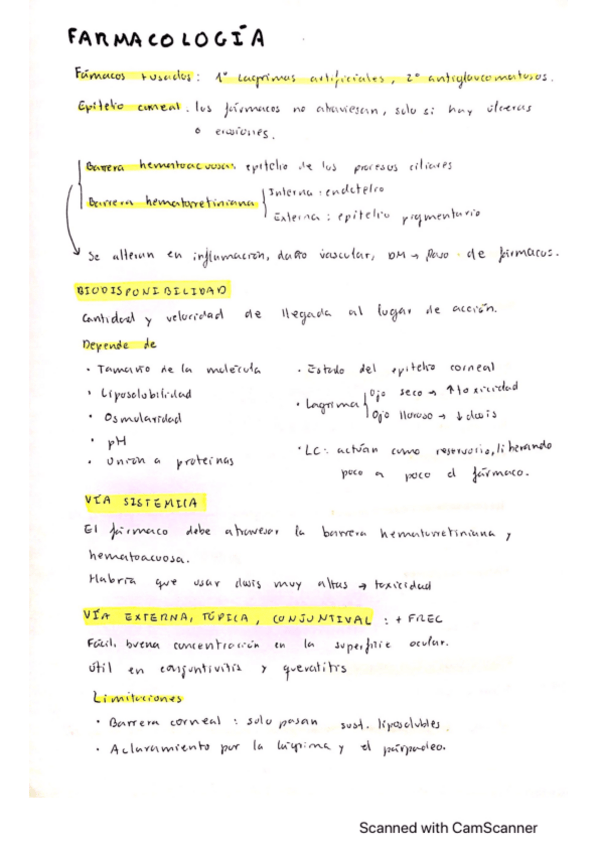 FARMACOLOGÍA
Fármacos + usados: 1º lagrimas artificiales, 2º antiglaucomatosos.
Epitelio corneal. los fármacos no atraviesan, solo si hay úlceras
o erosiones.
Barrera hematoacuosa. epitelio de los procesos ciliares
Barrera hematorretiniana
Interna: endotelio
Externa: epitelio pigmentario
Se alteran en inflamación, daño vascular, DM → Paso de fármacos.
BIODISPONIBILIDAD
Cantidad y velocidad de llegada al lugar de acción.
Depende de
· Tamaño de la molécula
· Liposolubilidad
· Osmolaridad
· pH
· Unión a proteinas
· Estado del epitelio corneal
· Lagrima
Ojo seco → ↑ toxicidad
Ojo lloroso → ↓ dosis
· LC: actúan como reservorio, liberando
poco a poco el fármaco.
VÍA SISTEMICA
El fármaco debe atravesar la barrera hematorretiniana y
hematoacuosa.
Habría que usar dosis muy altas → toxicidad
VÍA EXTERNA, TÓPICA, CONJUNTIVAL: + FREC
Fácil, buena concentración en la superficie ocular.
Útil en conjuntivitis y queratitis
Limitaciones
· Barrera corneal: solo pasan sust. liposolubles.
· Aclaramiento por la lágrima y el parpadeo.
Scanned with CamScanner